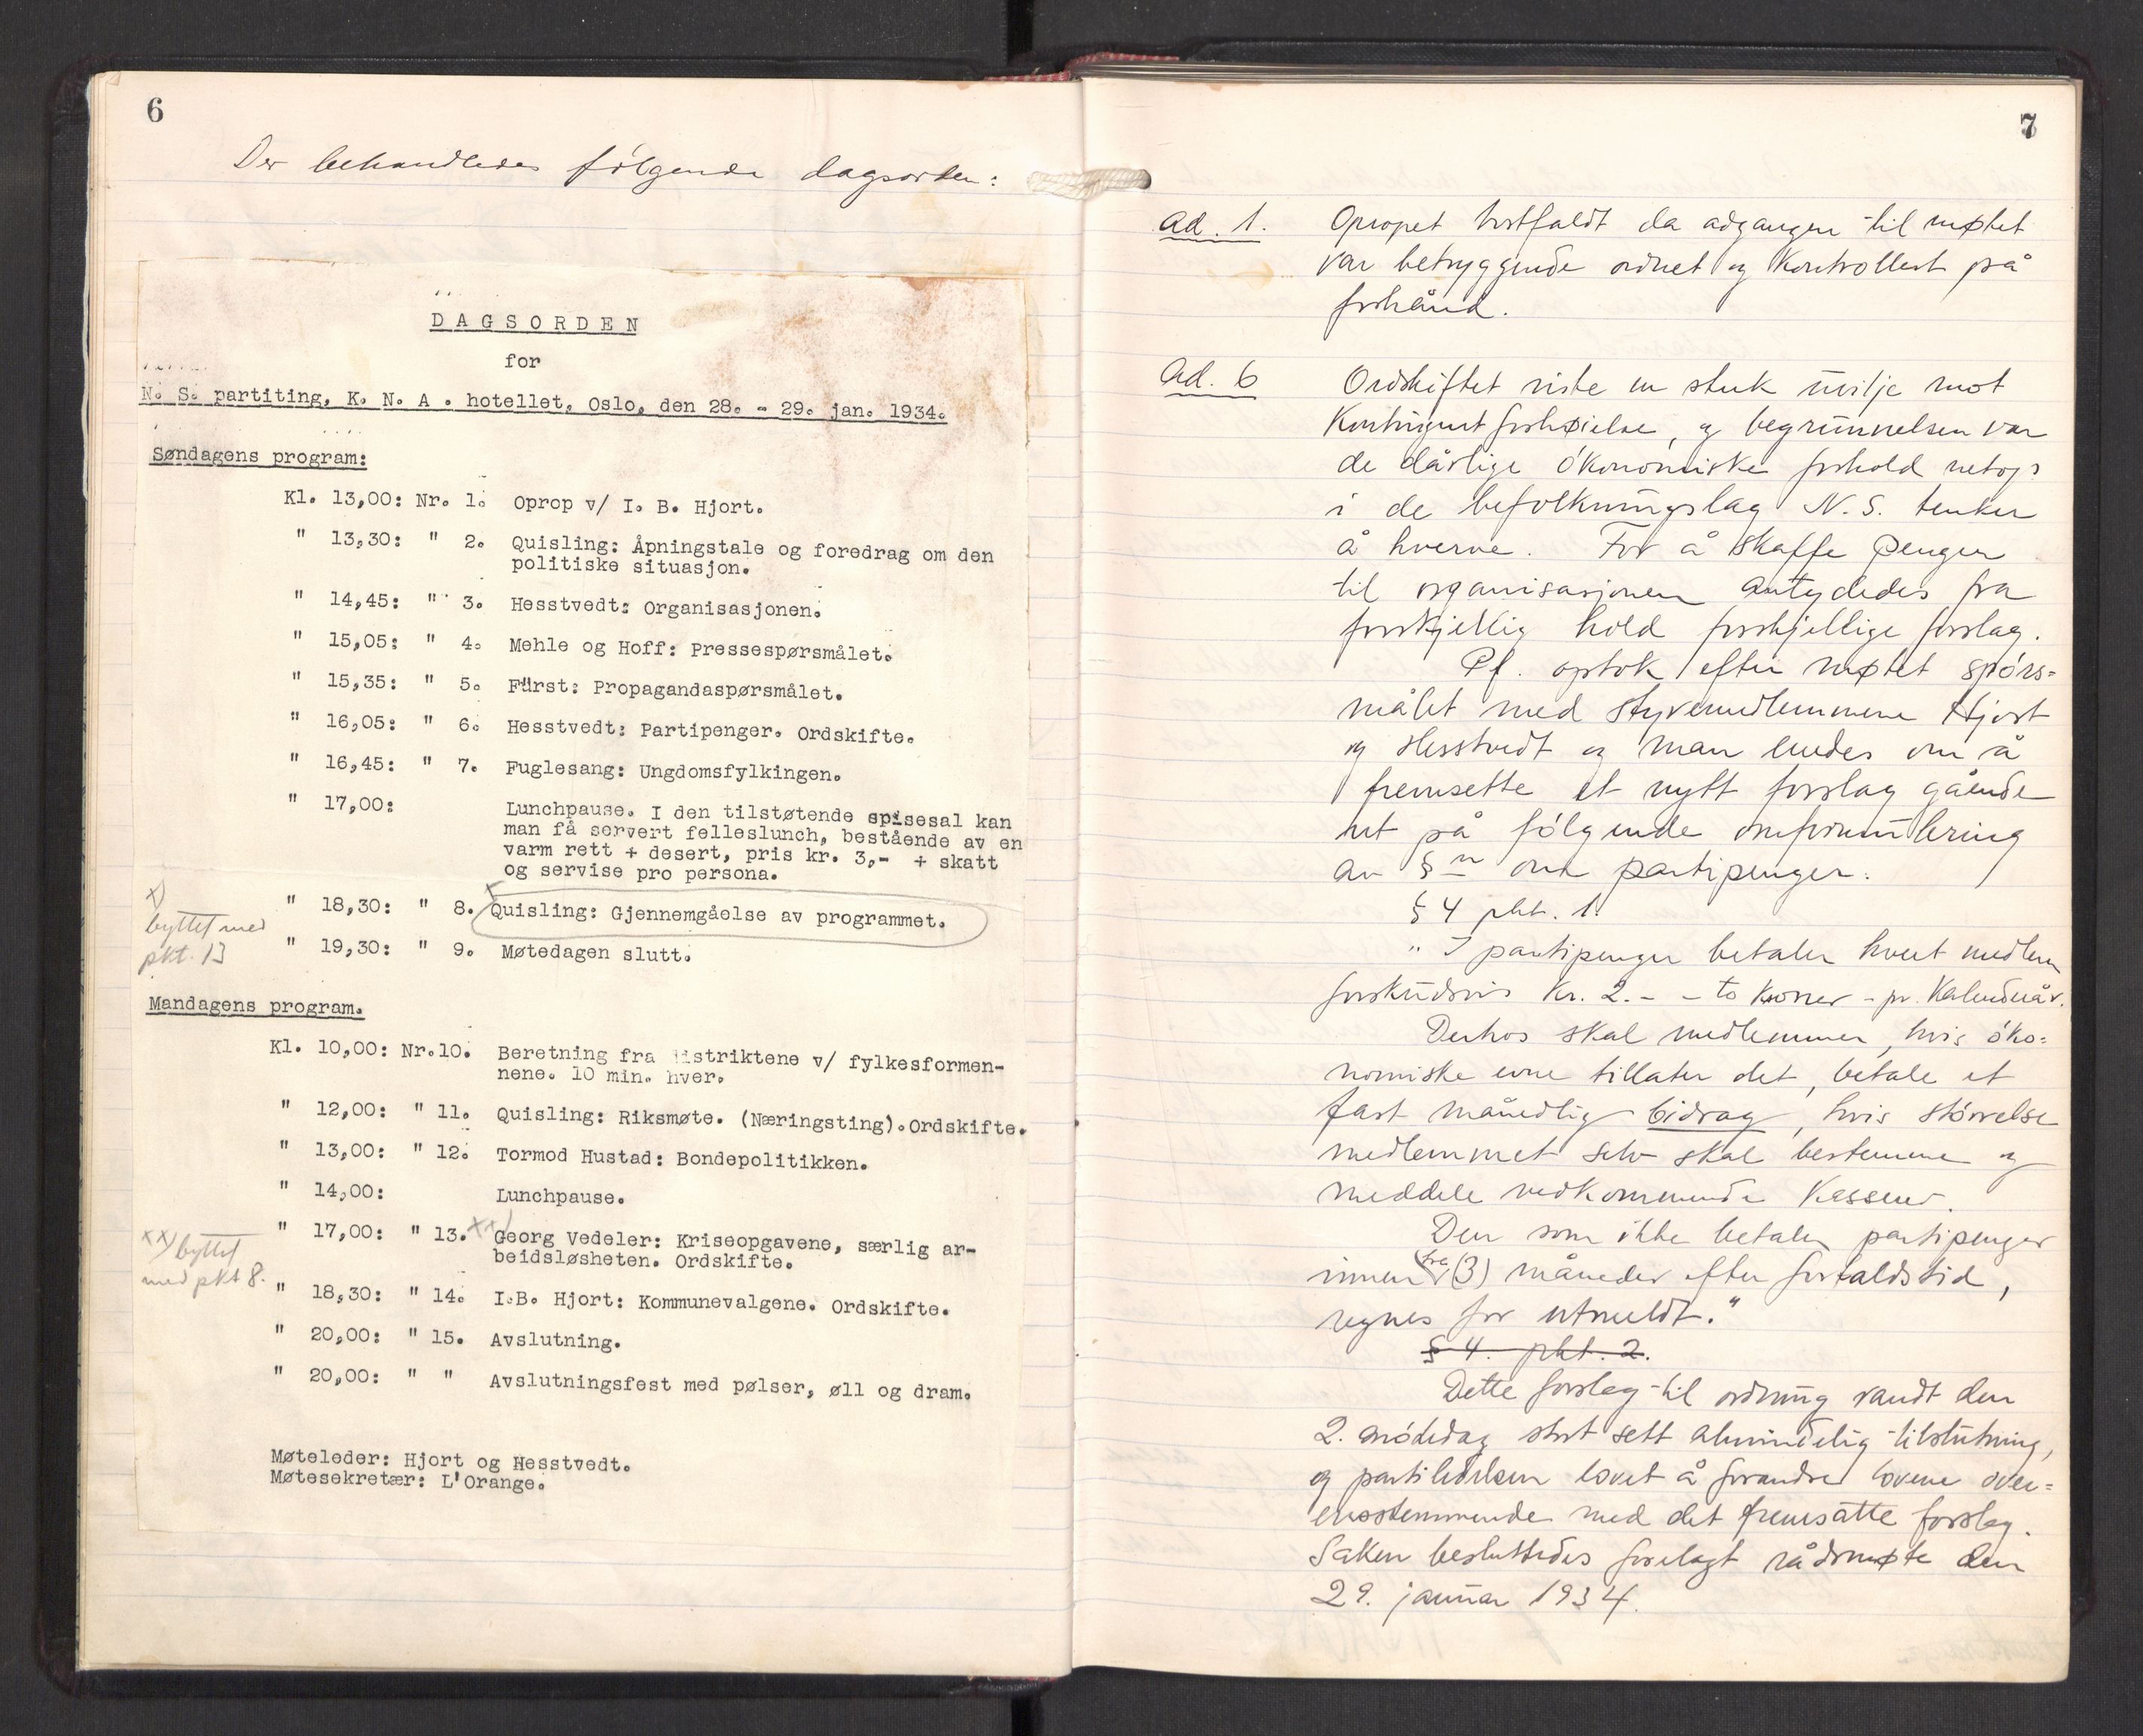 6
Der behandledes følgende dagsorden:
DAGSORDEN
for
N. S. partiting, K. N. A. hotellet, Oslo, den 28. - 29. jan. 1934.
Søndagens program:
Kl. 13,00: Nr. 1. Oprop v/ I. B. Hjort.
" 13,30: " 2. Quisling: Åpningstale og foredrag om den
politiske situasjon.
" 14,45: " 3. Hesstvedt: Organisasjonen.
" 15,05: " 4. Mehle og Hoff: Pressespørsmålet.
" 15,35: " 5. Fürst: Propagandaspørsmålet.
" 16,05: " 6. Hesstvedt: Partipenger. Ordskifte.
" 16,45: " 7. Fuglesang: Ungdomsfylkingen.
" 17,00: Lunchpause. I den tilstøtende spisesal kan
man få servert felleslunch, bestående av en
varm rett + desert, pris kr. 3,- + skatt
og servise pro persona.
x)
byttet med
pkt. 13
" 18,30: " 8. x Quisling: Gjennemgåelse av programmet.
" 19,30: " 9. Møtedagen slutt.
Mandagens program.
Kl. 10,00: Nr.10. Beretning fra distriktene v/ fylkesformen-
nene. 10 min. hver.
" 12,00: " 11. Quisling: Riksmøte. (Næringsting).Ordskifte.
" 13,00: " 12. Tormod Hustad: Bondepolitikken.
" 14,00: Lunchpause.
" 17,00: " 13. xx) Georg Vedeler: Kriseopgavene, særlig ar-
beidsløsheten. Ordskifte.
xx) byttet
med pkt 8.
" 18,30: " 14. I.B. Hjort: Kommunevalgene. Ordskifte.
" 20,00: " 15. Avslutning.
" 20,00: " " Avslutningsfest med pølser, øll og dram.
Møteleder: Hjort og Hesstvedt.
Møtesekretær: L'Orange.
7
Ad. 1. Opropet bortfaldt da adgangen til møtet
var betryggende ordnet og kontrollert på
forhånd.
Ad. 6 Ordskiftet viste en sterk uvilje mot
kontingentforhøielse, og begrunnelsen var
de dårlige økonomiske forhold netop
i de befolkningslag N. S. tenker
å hverve. For å skaffe penger
til organisasjonen antydedes fra
forskjellig hold forskjellige forslag.
Pf. optok efter møtet spørs=
målet med styremedlemmene Hjort
og Hesstvedt og man enedes om å
fremsette et nytt forslag gående
ut på følgende omformulering
av §n om partipenger:
§ 4 pkt. 1.
" I partipenger betaler hvert medlem
forskudsvis kr. 2.- - to kroner - pr. kalenderår.
Derhos skal medlemmer, hvis øko=
nomiske evne tillater det, betale et
fast månedlig bidrag, hvis størrelse
medlemmet selv skal bestemme og
meddele vedkommende kasserer.
Den som ikke betaler partipenger
innen tre (3) måneder efter forfaldstid,
regnes for utmeldt."
§ 4. pkt. 2.
Dette forslag til ordning vandt den
2. mötedag stort sett almindelig tilslutning,
og partiledelsen lovet å forandre lovene over=
ensstemmende med det fremsatte forslag.
Saken besluttedes forelagt rådsmøte den
29. januar 1934.